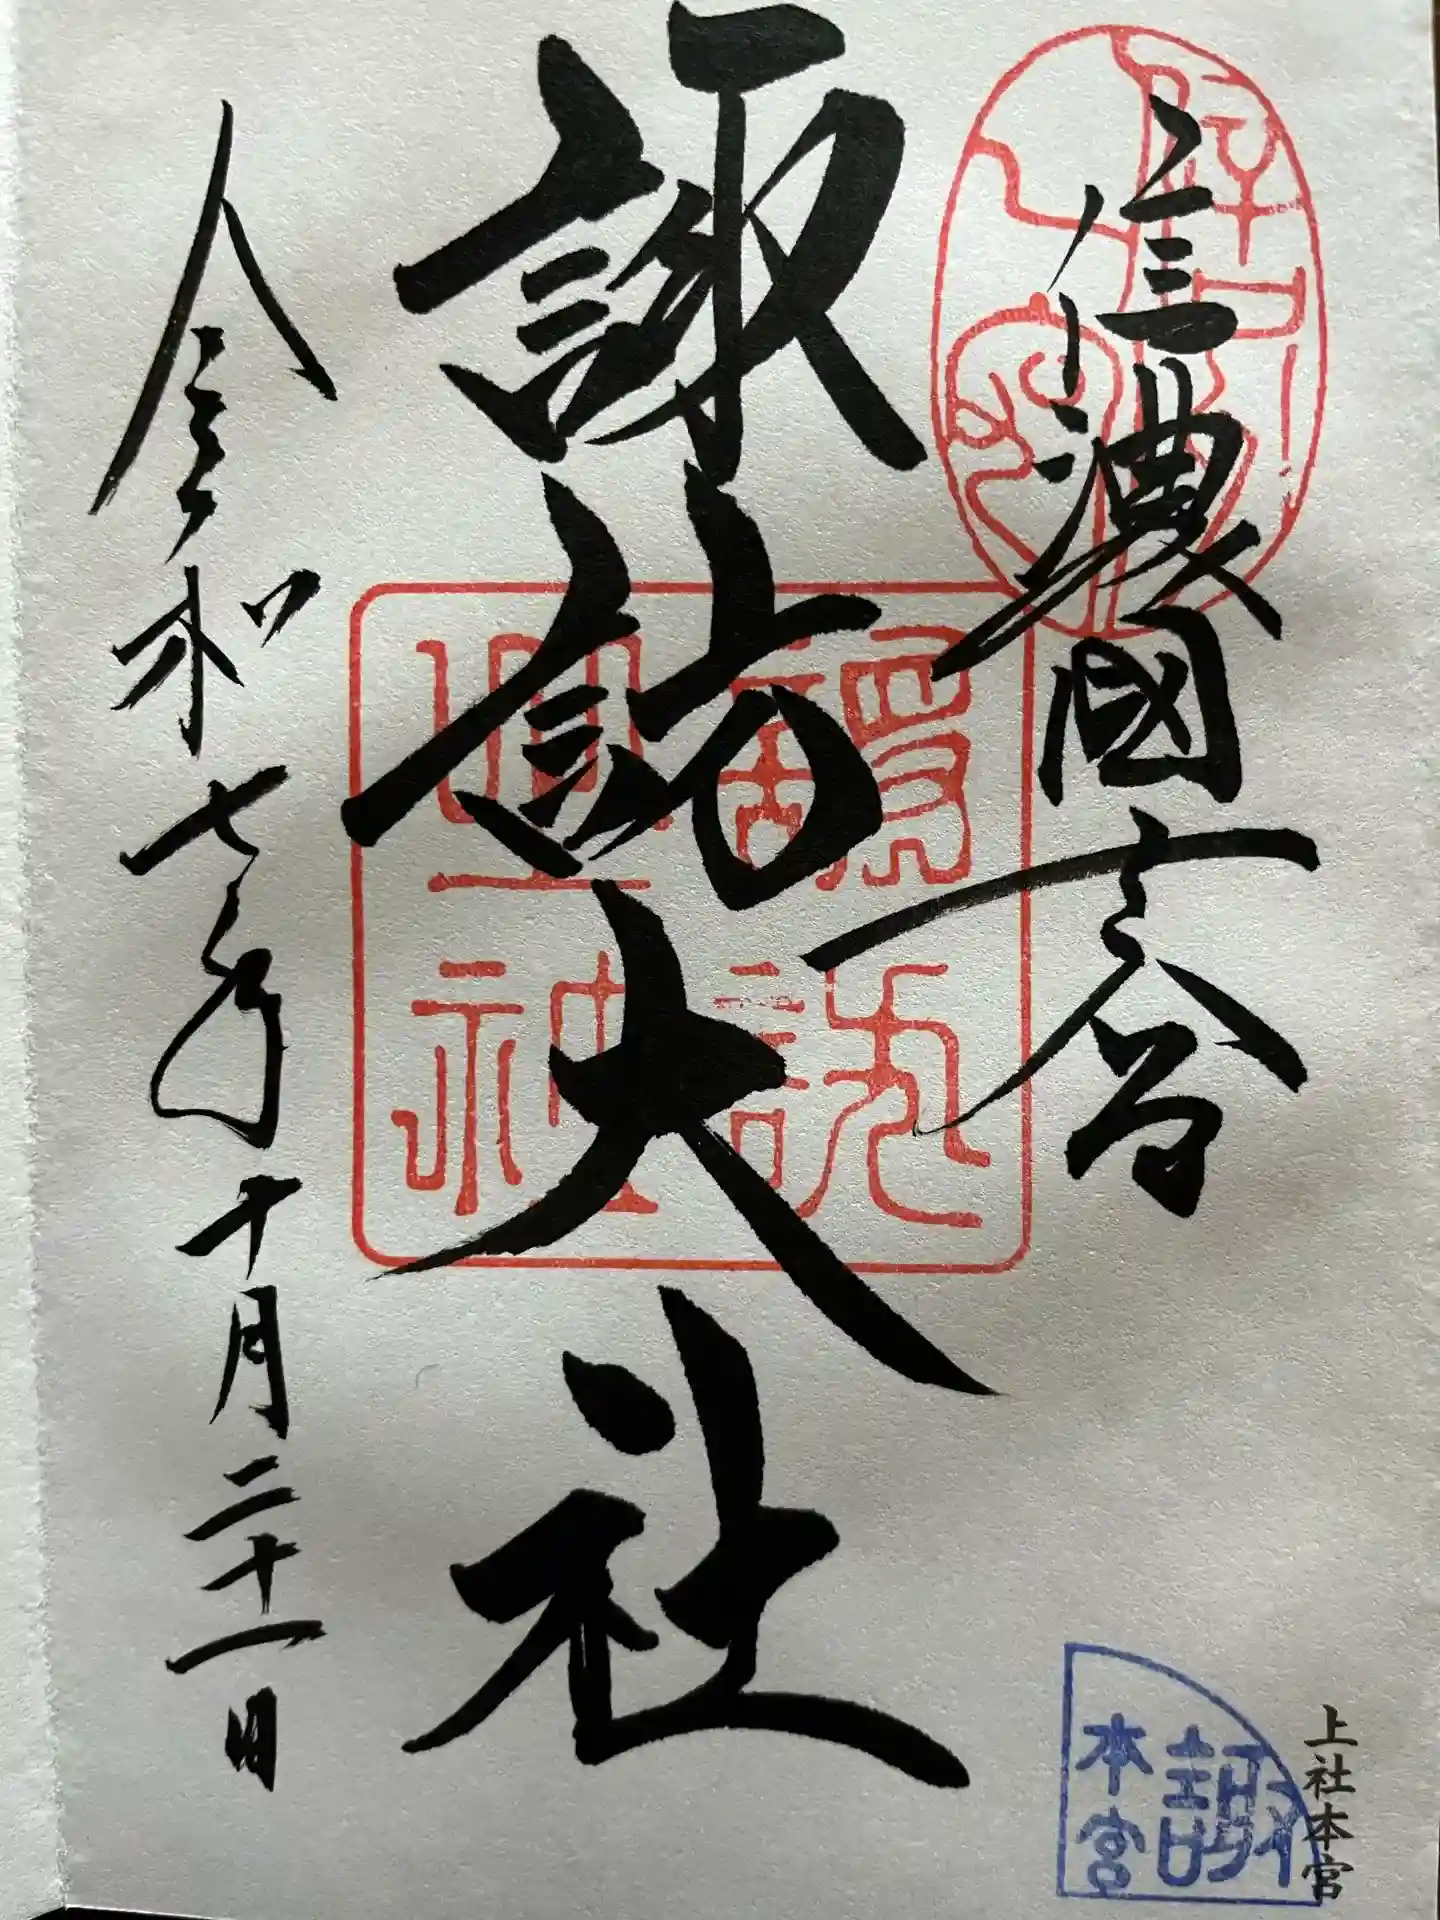 信濃國一之宮
諏訪大社
令和七年十月二十一日
諏
本宮
上社本宮